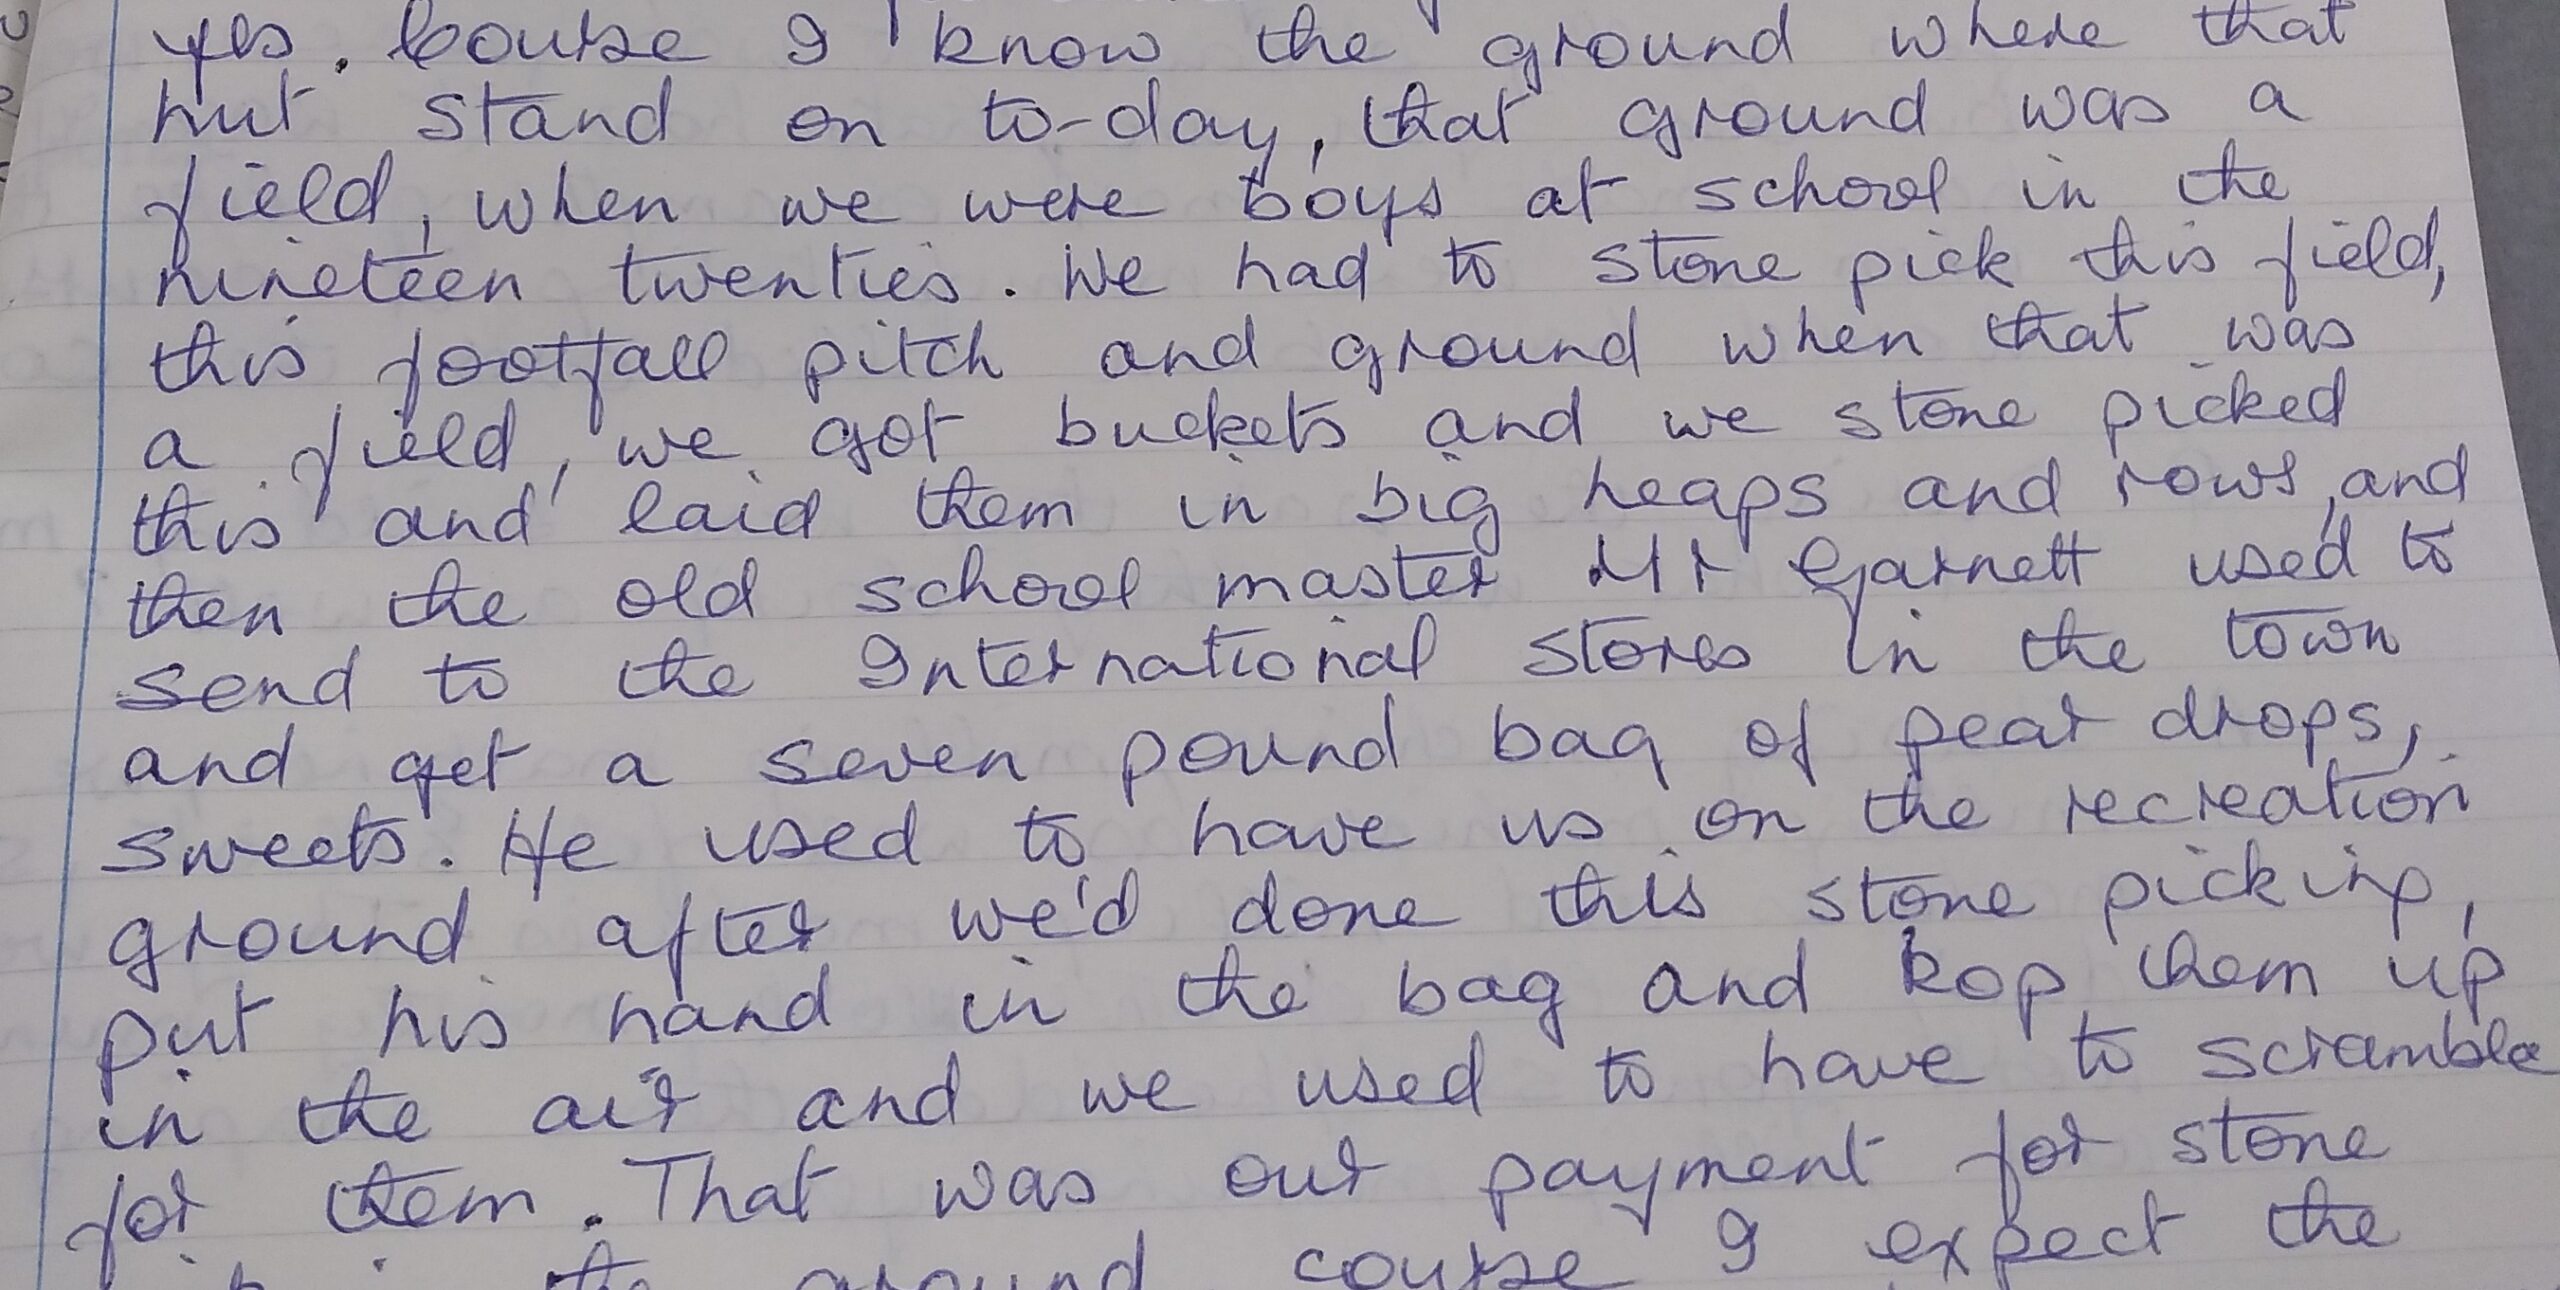 yes. Course I know the ground where that
hut stand on to-day, that ground was a
field, when we were boys at school in the
nineteen twenties. We had to stone pick this field,
this football pitch and ground when that was
a field, we got buckets and we stone picked
this and laid them in big heaps and rows, and
then the old school master Mr Garnett used to
send to the International stores in the town
and get a seven pound bag of pear drops,
sweets. He used to have us on the recreation
ground after we'd done this stone picking,
put his hand in the bag and kop them up
in the air and we used to have to scramble
for them. That was our payment for stone
the ground course I expect the